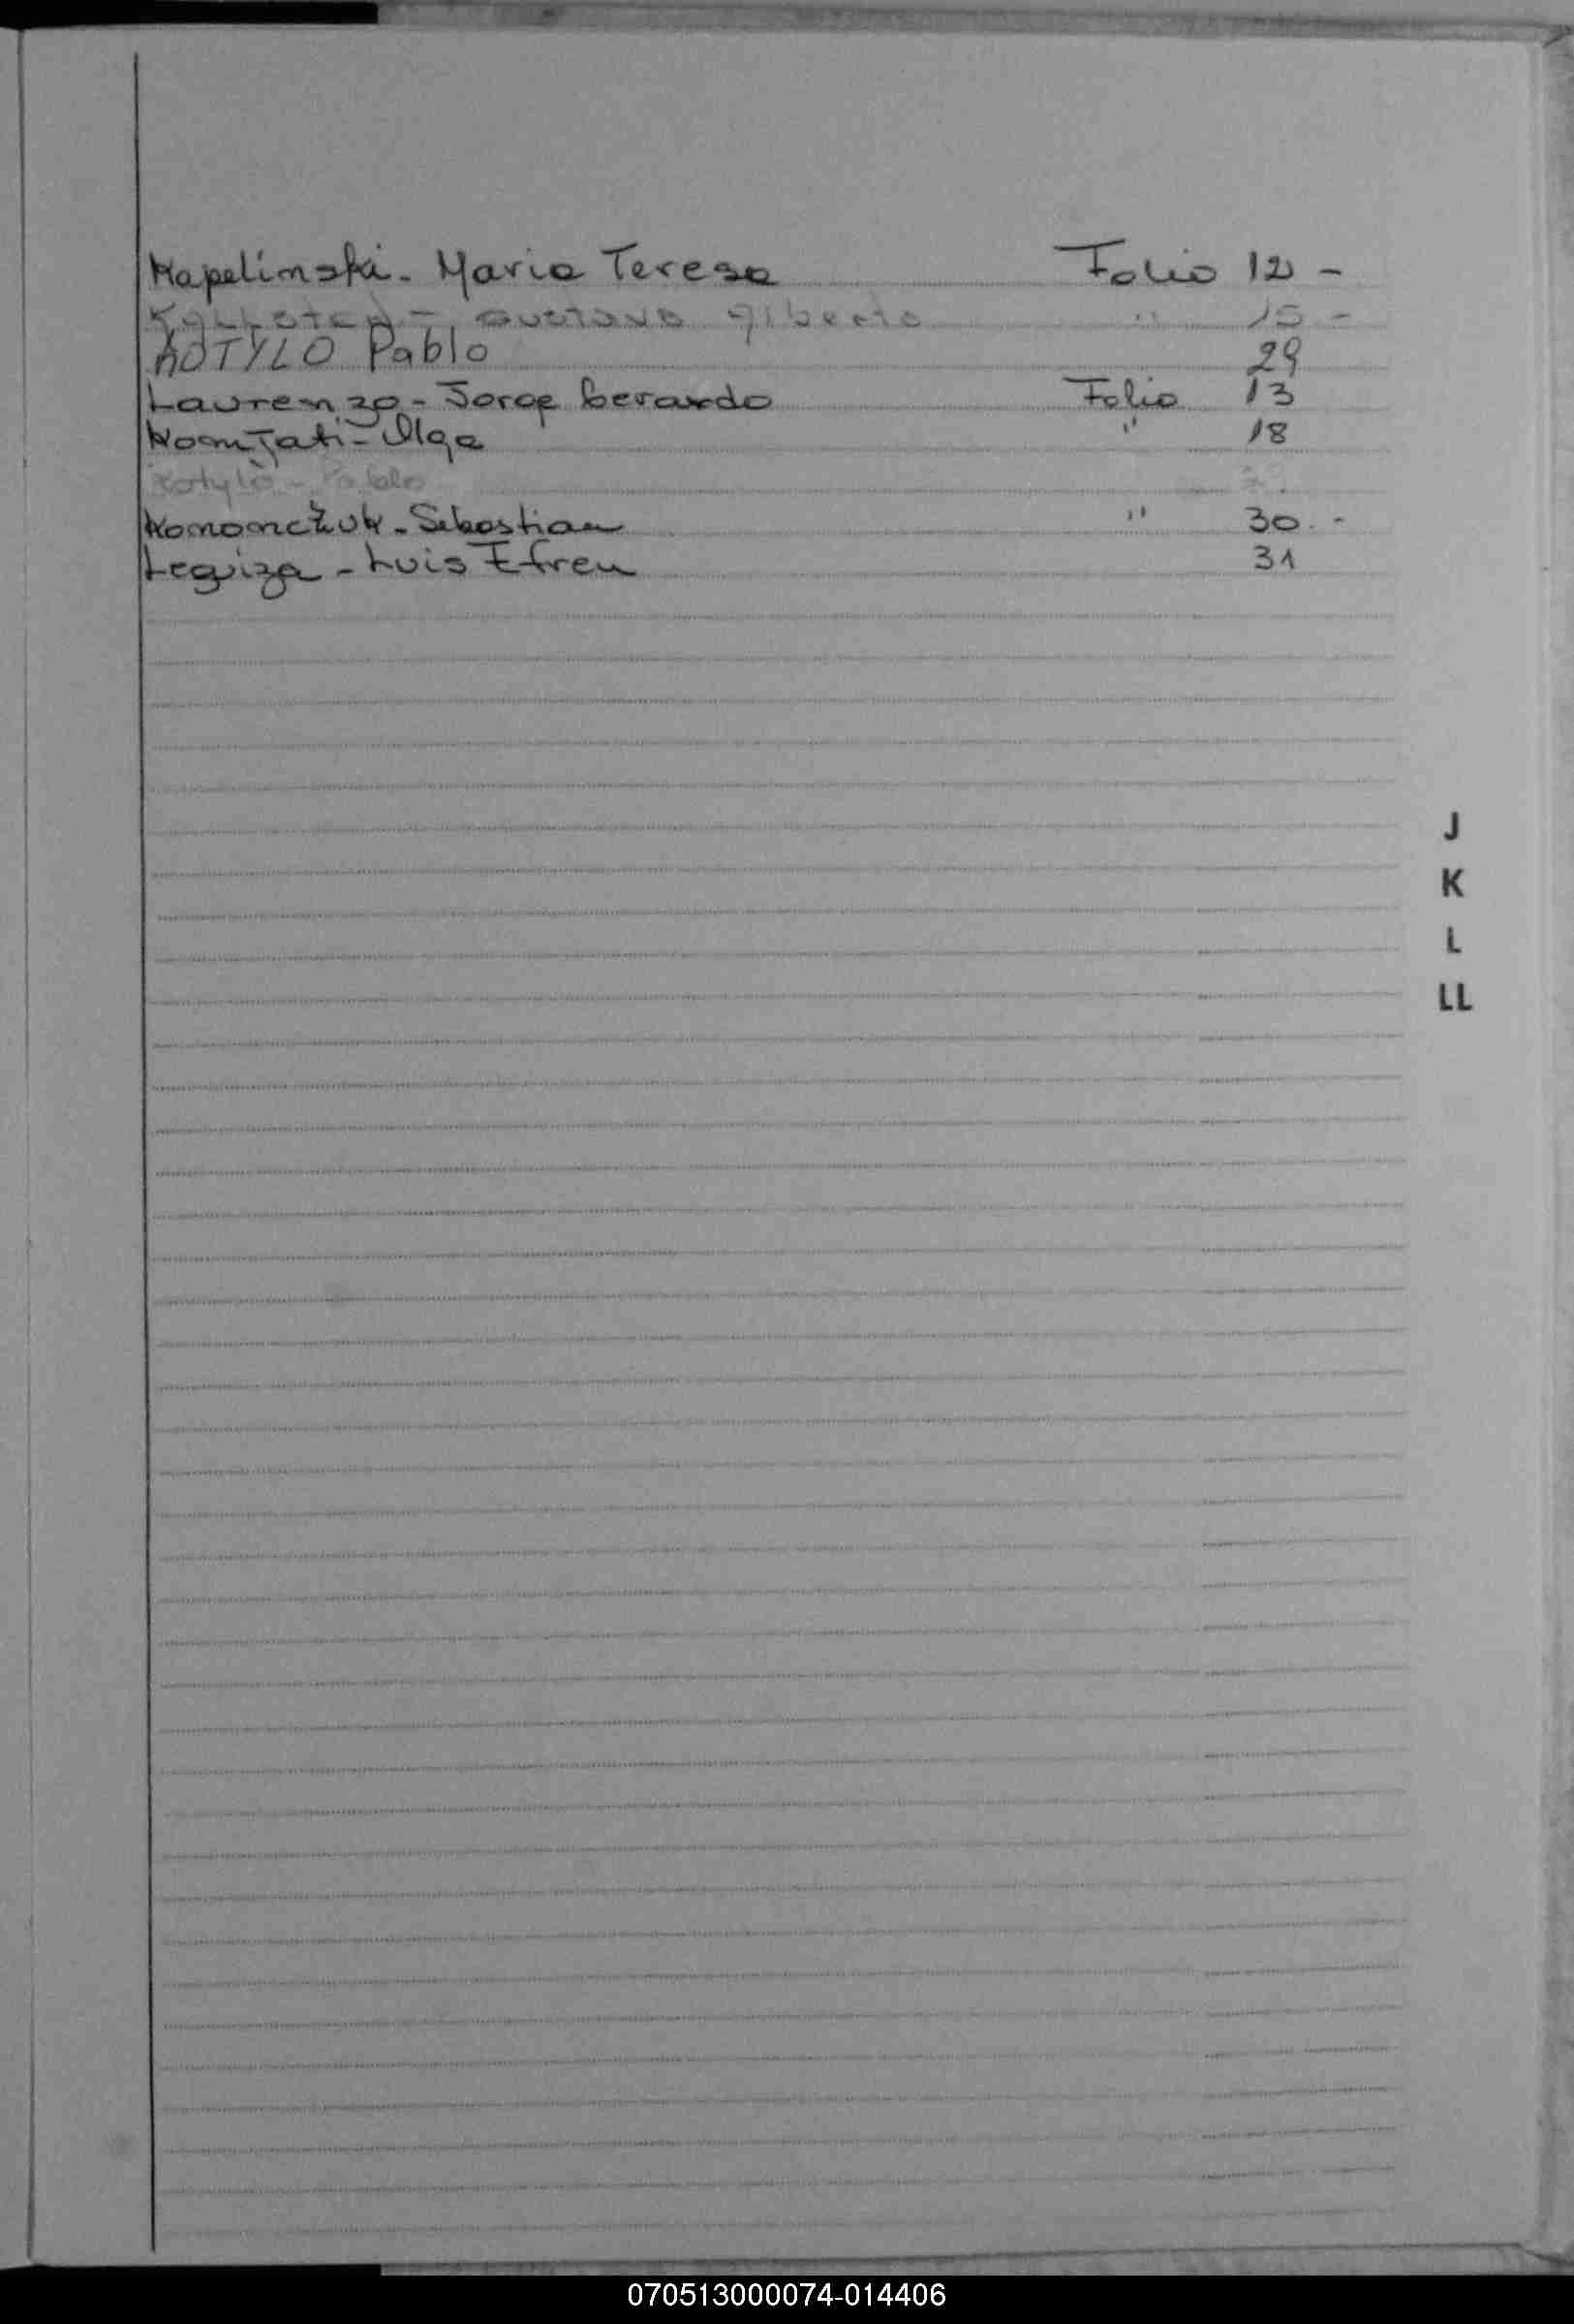 Kapelinski - Maria Teresa Folio 12 -
Gustavo Alberto " 15 -
KOTYLO Pablo 29
Laurenzo - Jorge Gerardo Folio 13
Olga " 18
Kotylo - Pablo
Kononczuk - Sebastian " 30 -
Leguiza - Luis Efren 31
J
K
L
LL
070513000074-014406